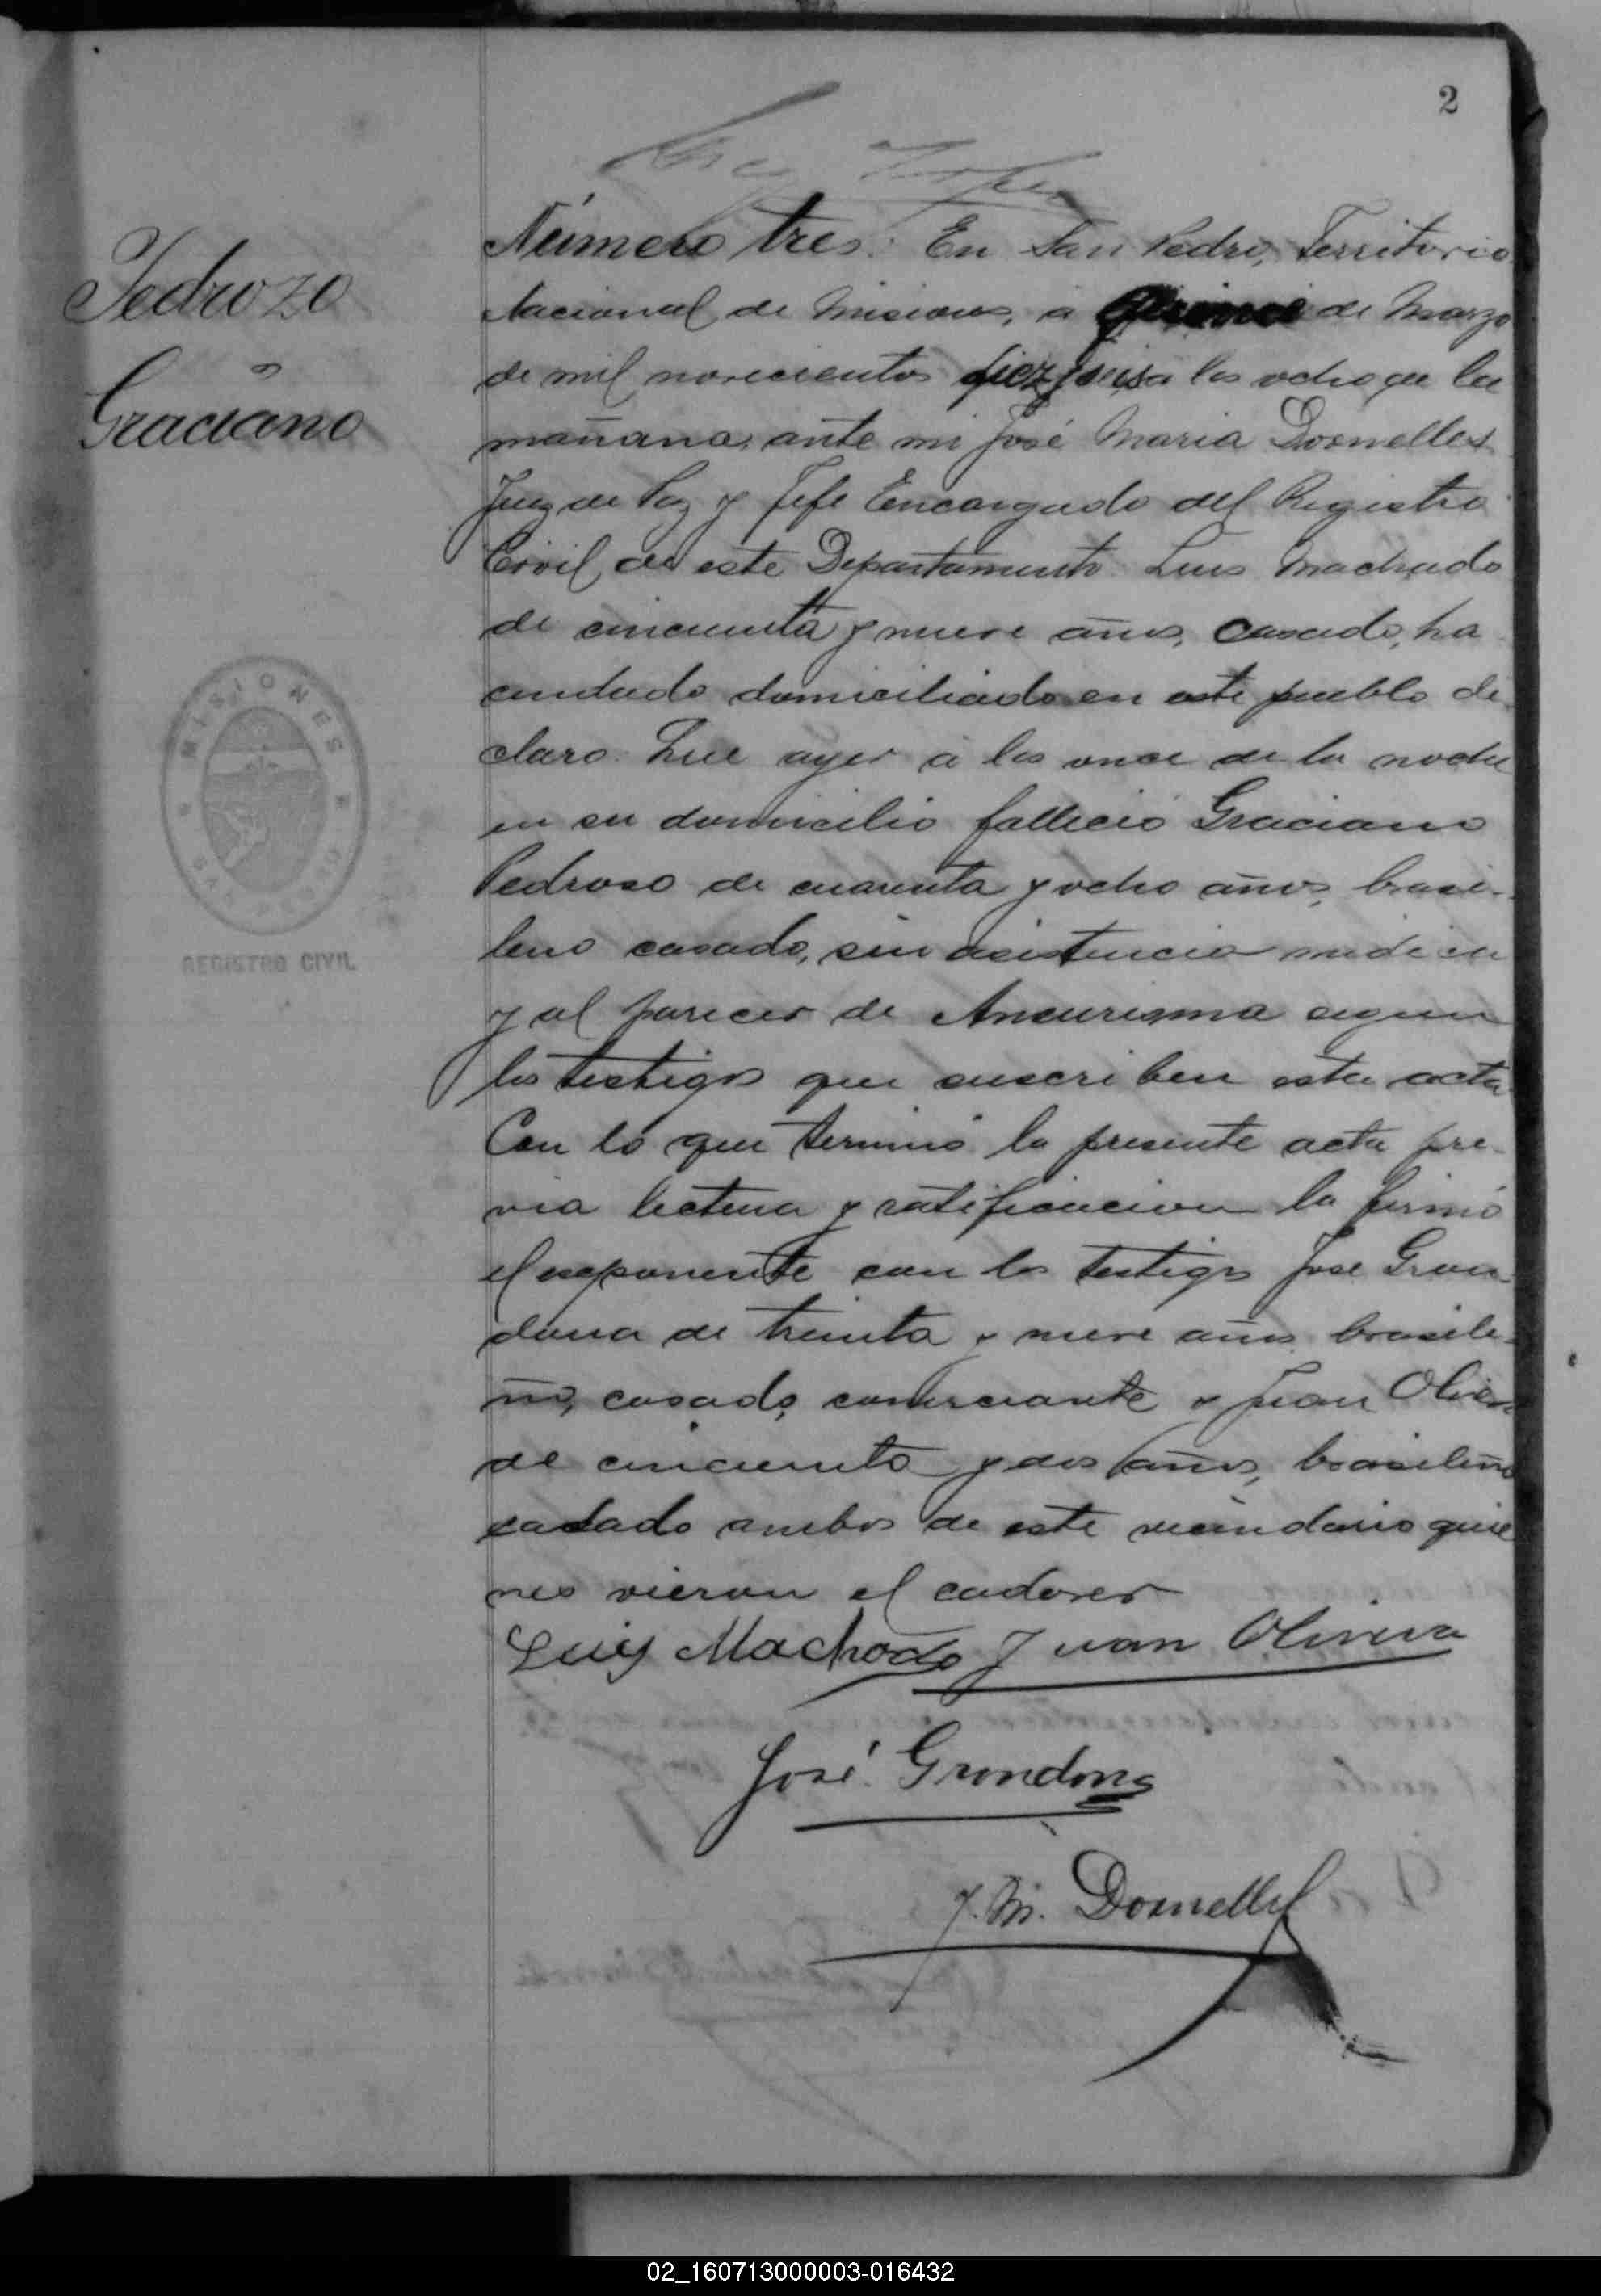 2
Pedrozo
Graciano
Número tres. En San Pedro, Territorio
Nacional de Misiones, a quince de Marzo
de mil novecientos diez y seis a las ocho de la
mañana, ante mi José Maria Dornelles
Juez de Paz y Jefe Encargado del Registro
Civil de este Departamento Luis Machado
de cincuenta y nueve años, casado, ha
cendado domiciliado en este pueblo de
claro: Que ayer a las once de la noche
en su domicilio falleció Graciano
Pedroso de cuarenta y ocho años, brasi-
leno casado, sin asistencia medica
y al parecer de Aneurisma segun
los testigos que suscriben esta acta
Con lo que terminó la presente acta pre-
via lectura y ratificacion la firmó
el exponente con los testigos José Gron
dona de treinta y nueve años brasile-
ño, casado, comerciante y Juan Olivera
de cincuenta y dos años, brasileño
casado ambos de este vecindario quie
nes vieron el cadaver
Luis Machado Juan Olivera
José Grondona
J. M. Dornelles
MISIONES
REGISTRO CIVIL
02_160713000003-016432